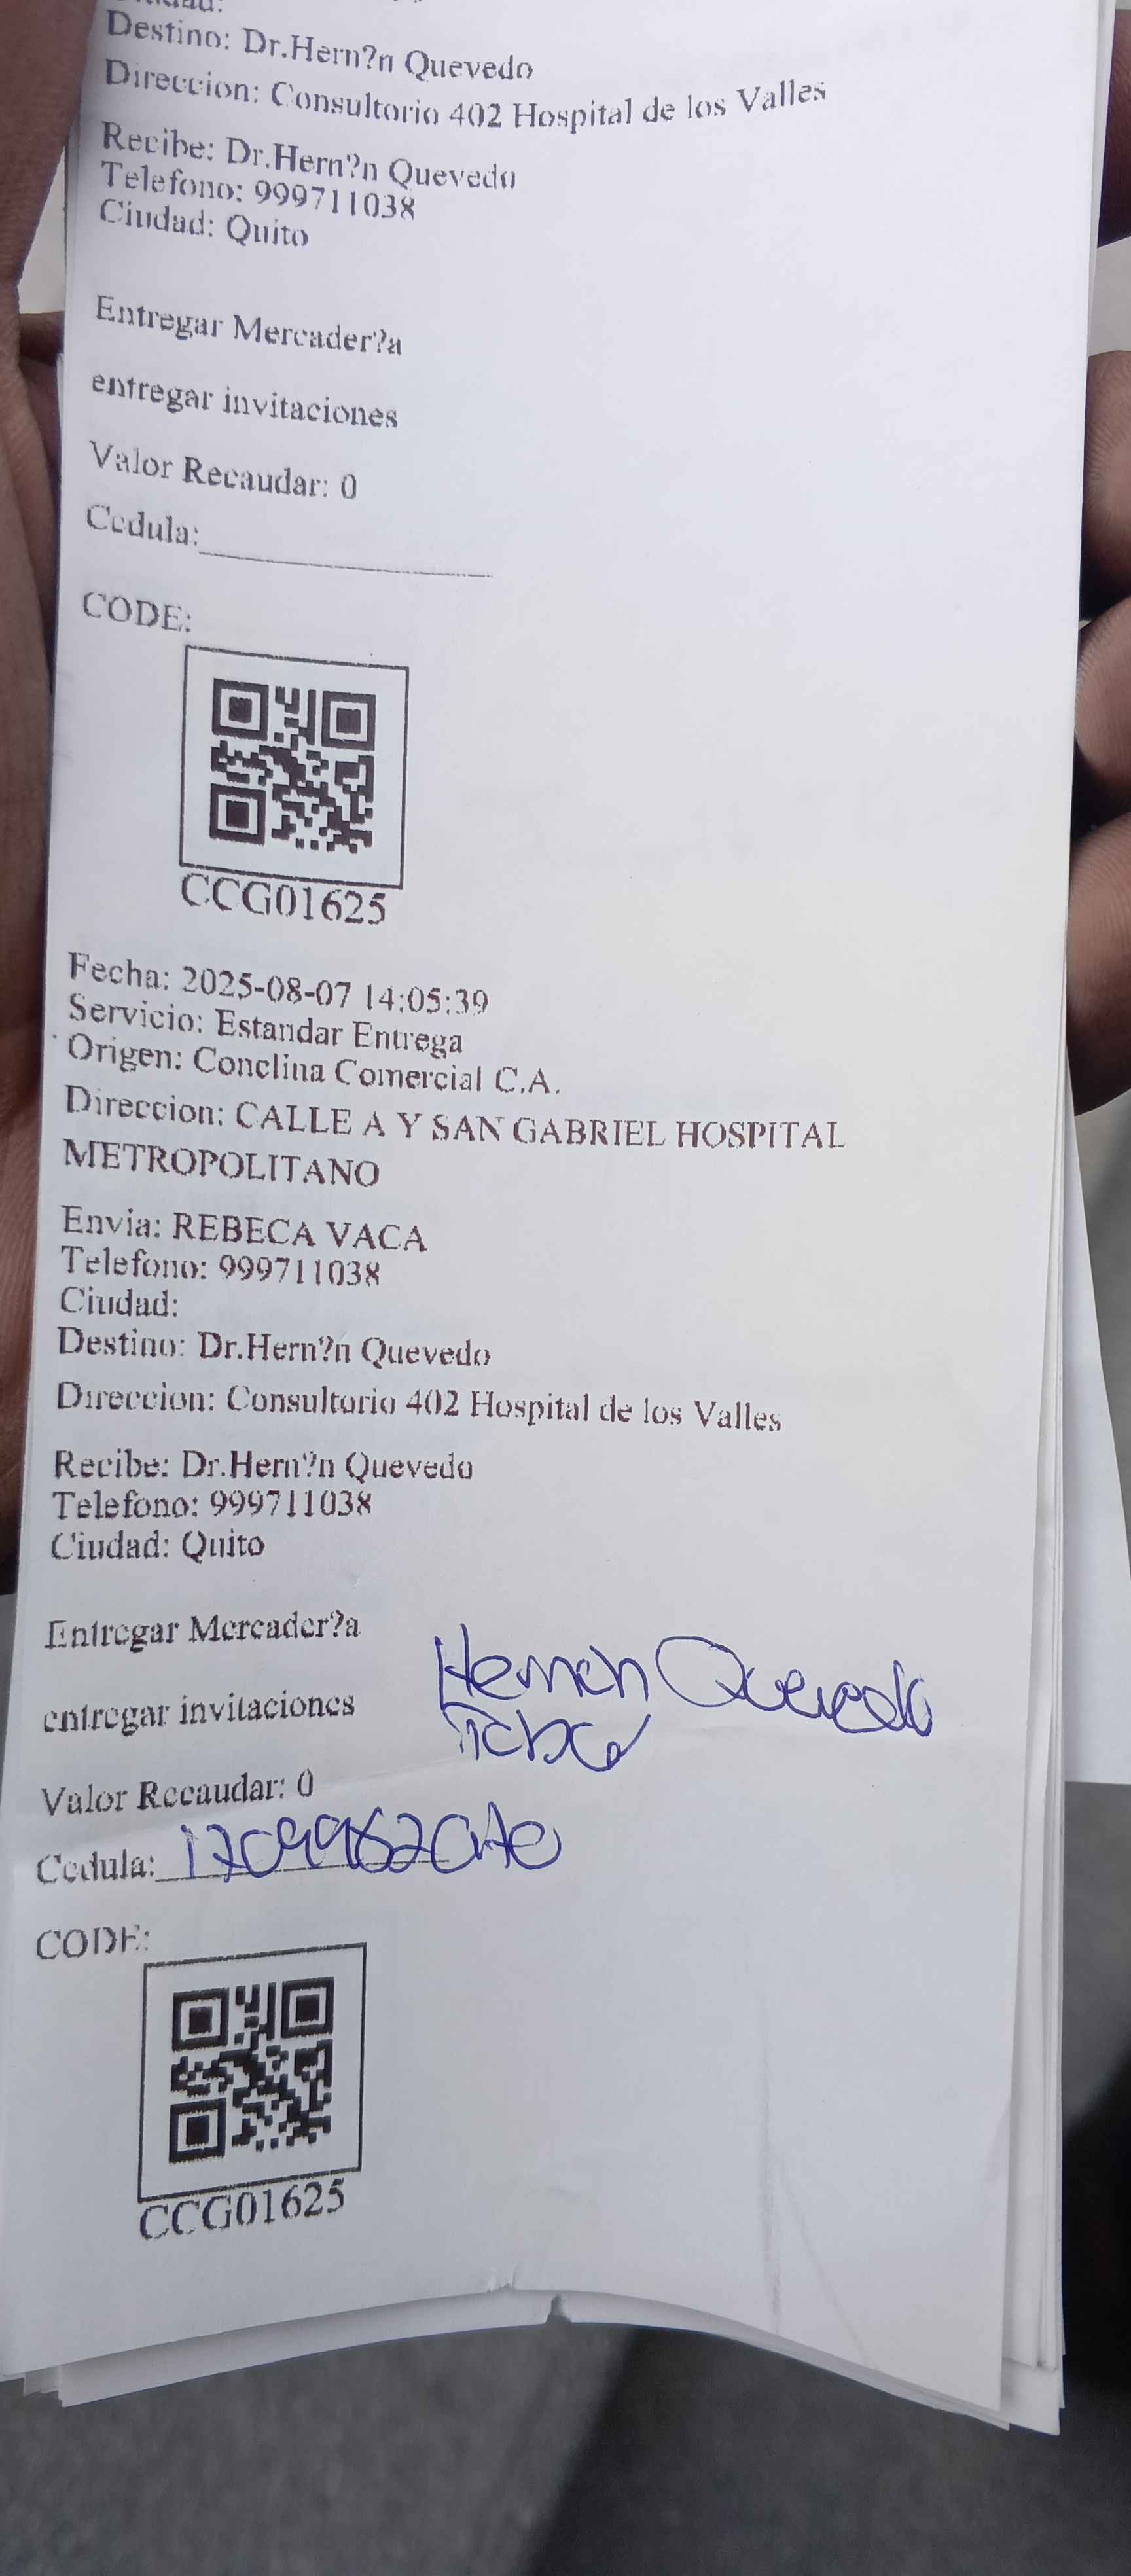 Destino: Dr.Hern?n Quevedo
Direccion: Consultorio 402 Hospital de los Valles
Recibe: Dr.Hern?n Quevedo
Telefono: 999711038
Ciudad: Quito
Entregar Mercader?a
entregar invitaciones
Valor Recaudar: 0
Cedula:
CODE:
CCG01625
Fecha: 2025-08-07 14:05:39
Servicio: Estandar Entrega
Origen: Conclina Comercial C.A.
Direccion: CALLE A Y SAN GABRIEL HOSPITAL
METROPOLITANO
Envia: REBECA VACA
Telefono: 999711038
Ciudad:
Destino: Dr.Hern?n Quevedo
Direccion: Consultorio 402 Hospital de los Valles
Recibe: Dr.Hern?n Quevedo
Telefono: 999711038
Ciudad: Quito
Entregar Mercader?a
Hernan Quevedo
entregar invitaciones
Valor Recaudar: 0
Cedula:
CODE:
CCG01625